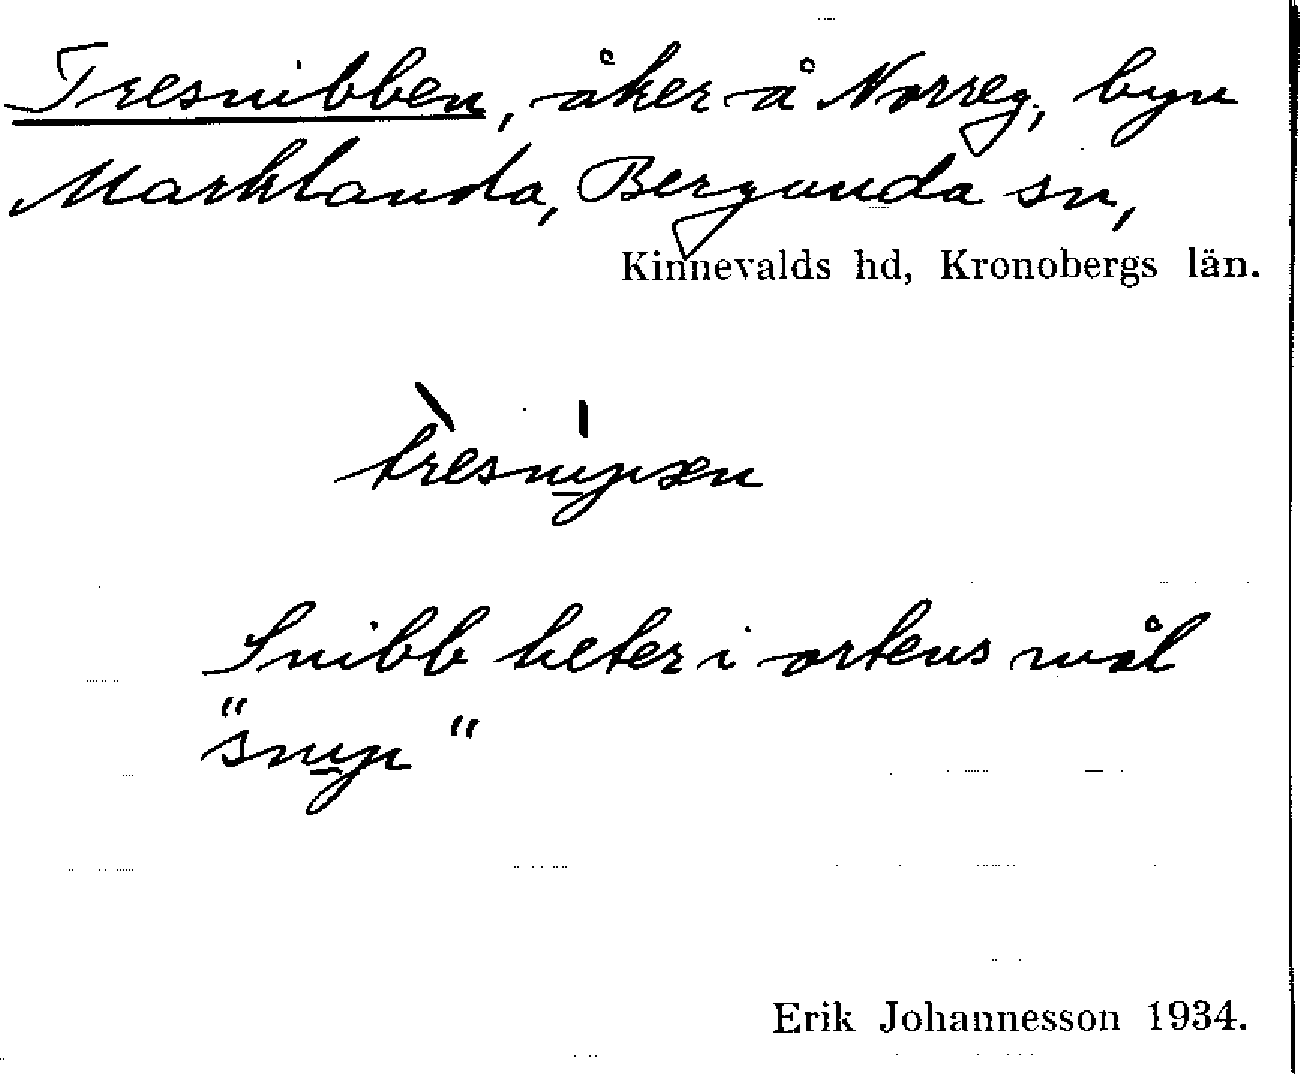 Tresnibben, åker å Norreg, byn
Marklanda, Bergunda sn,
Kinnevalds hd, Kronobergs län.
trèsnı̍pæn
Snibb heter i ortens mål
"snyp"
Erik Johannesson 1934.